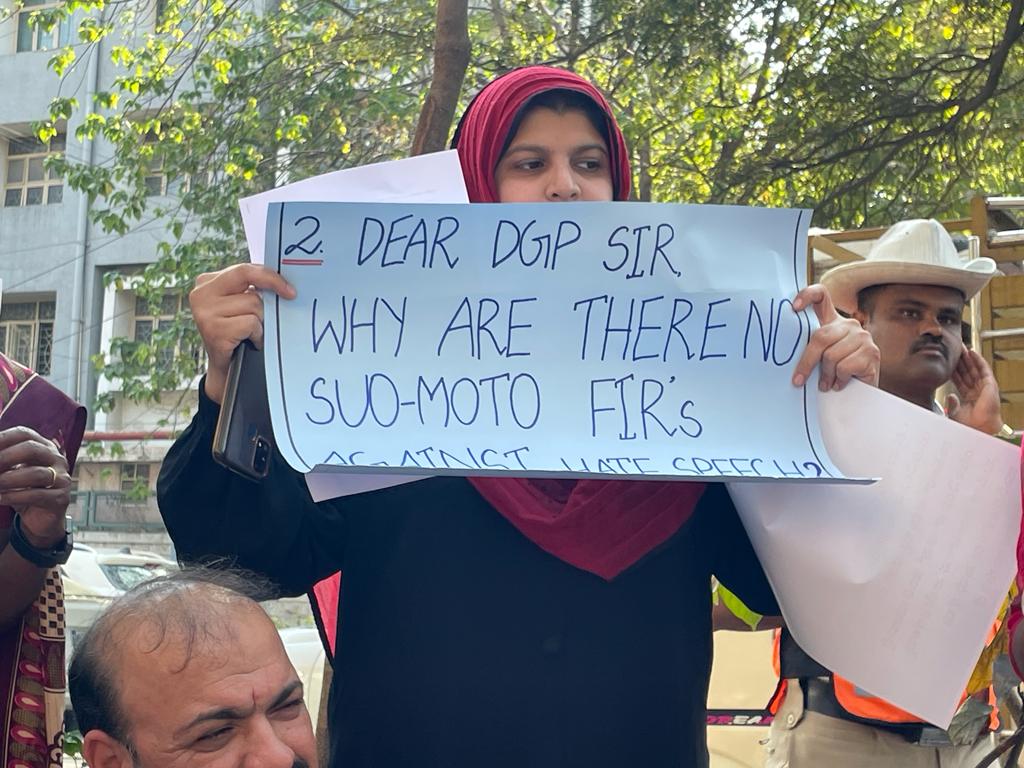 2. DEAR DGP SIR,
WHY ARE THERE NO
SUO-MOTO FIR's
AGAINST HATE SPEECH?